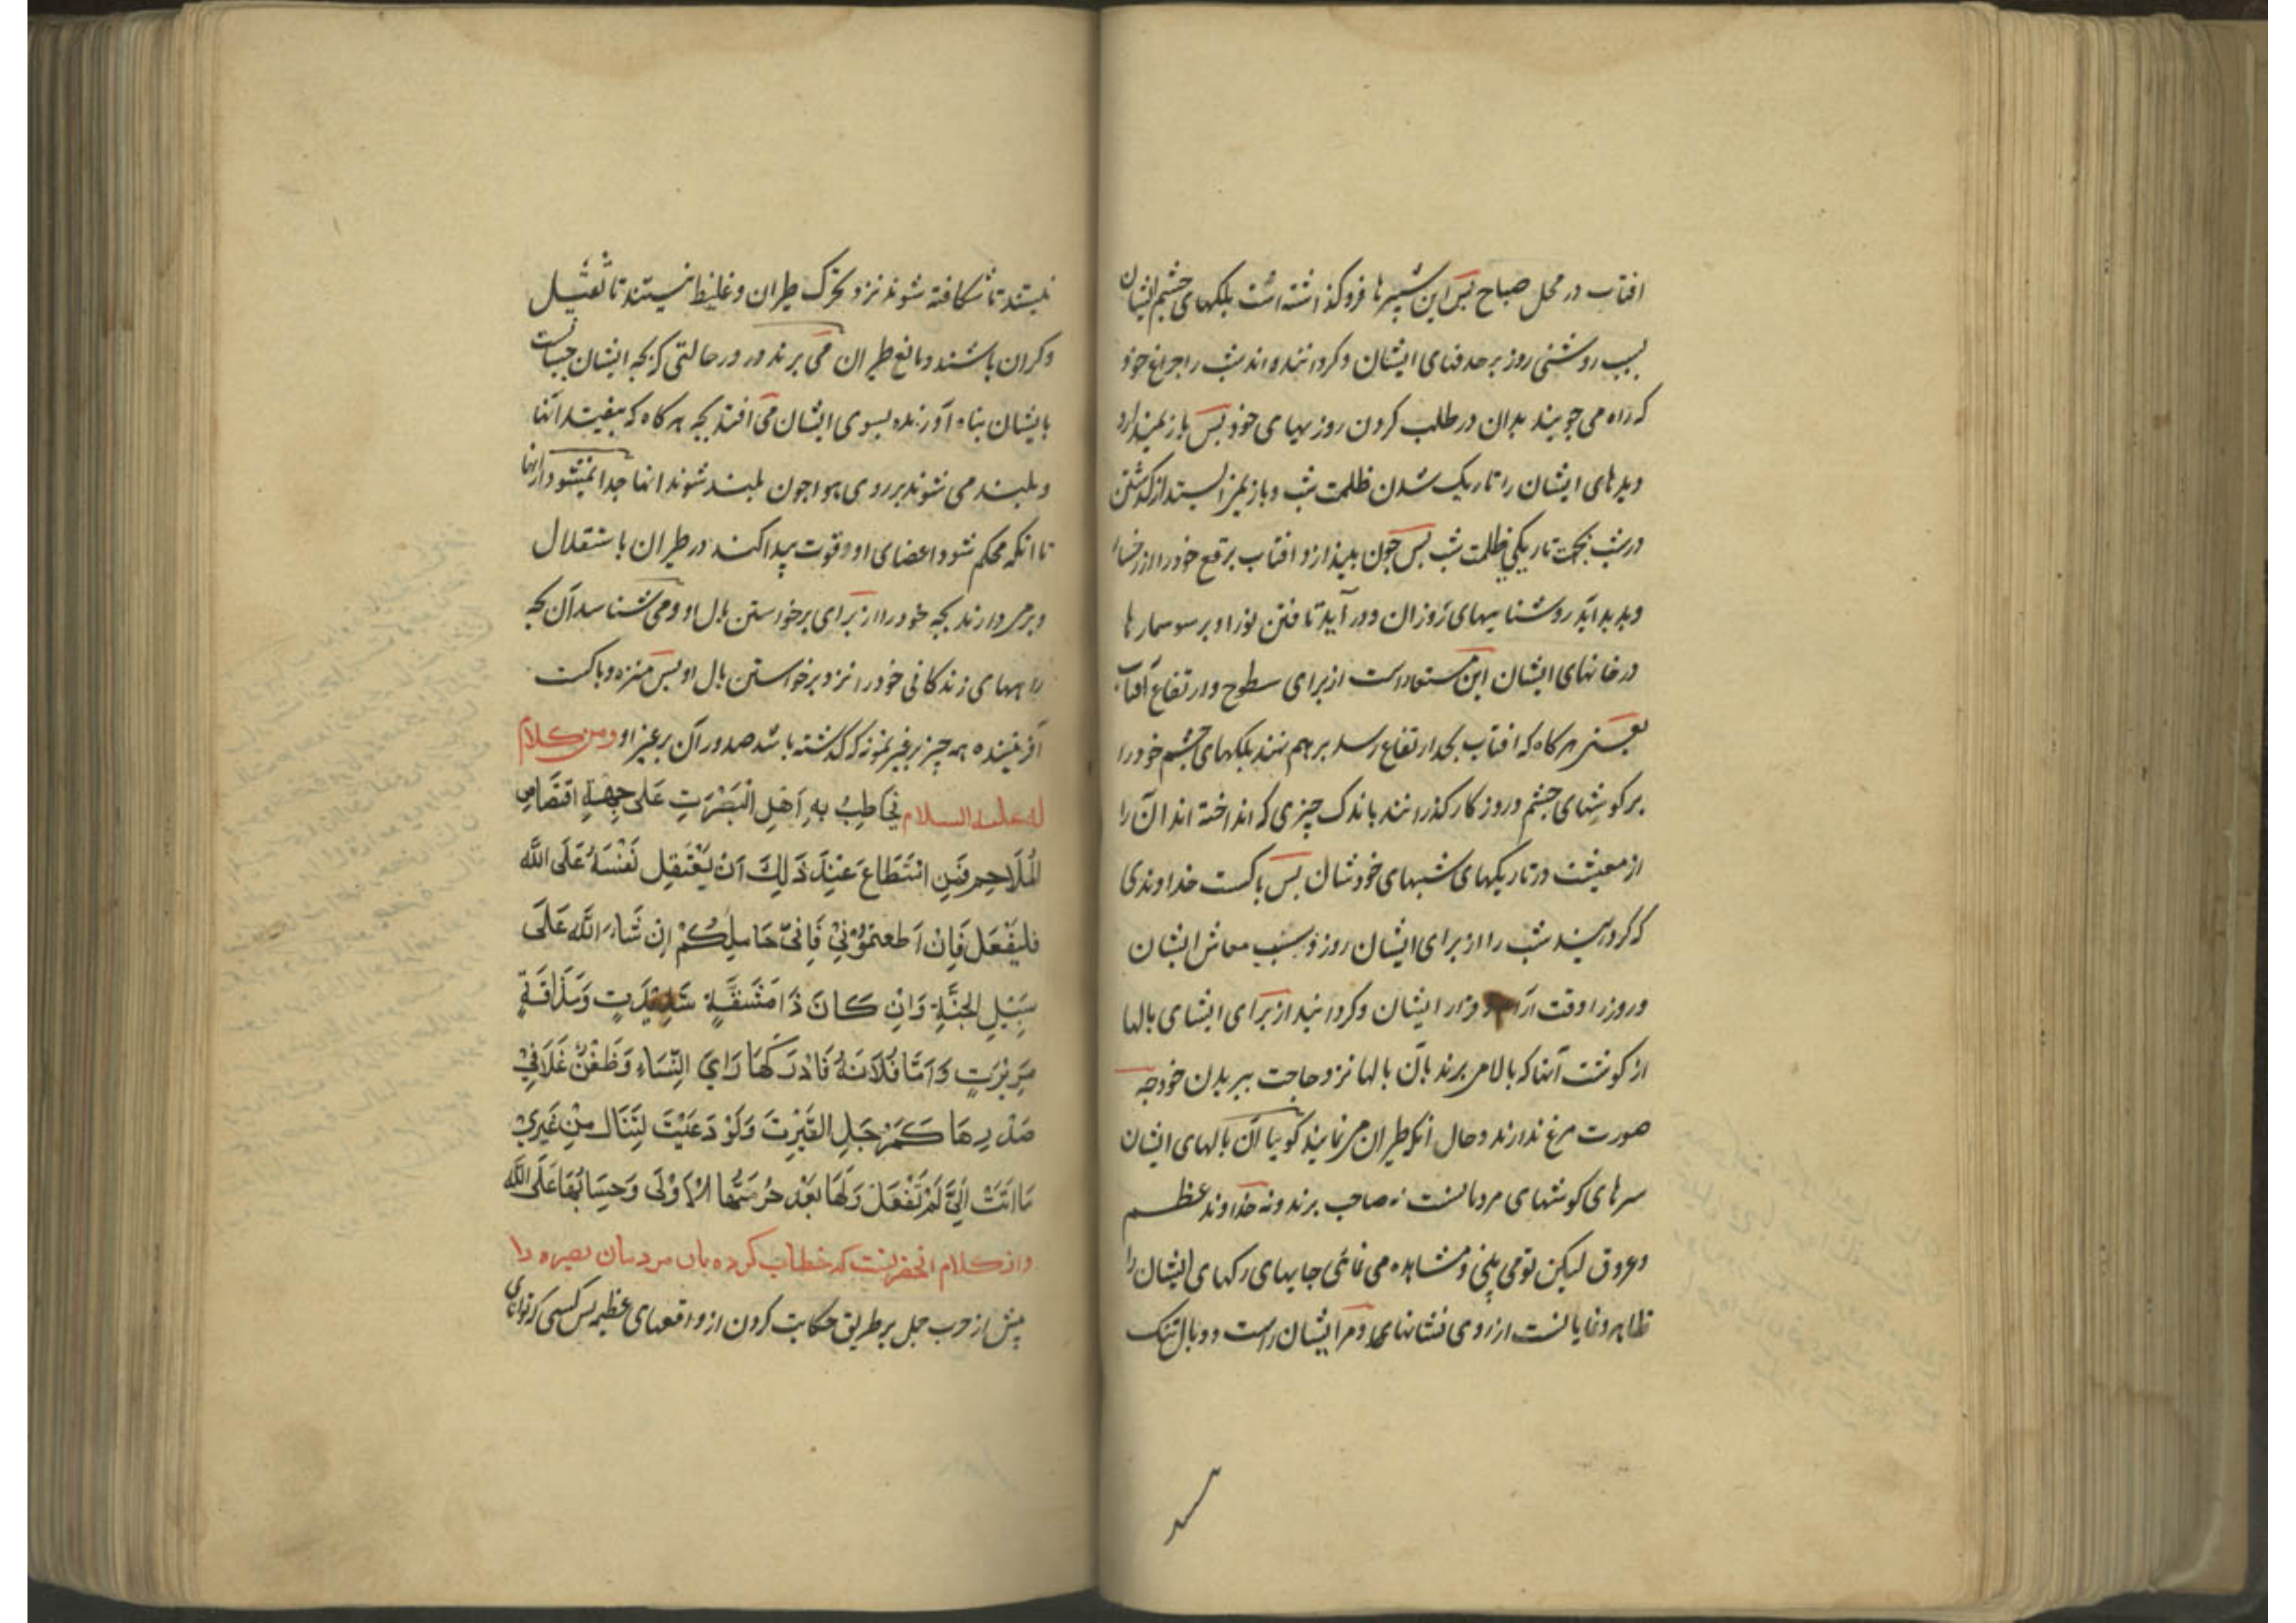 افتاب در محل صباح پس این شپپرها فروکذاشته است پلکهای چشم ایشان
بسبب روشنی روز بر حدقهای ایشان وکردانندهاند شب را چراغ خود
که راه می جویند بدان در طلب کردن روزیهای خود پس باز نمیدارد
دیدهای ایشان را تاریک شدن ظلمت شب و باز نمی ایستند از کذشتن
در شب بجهت تاریکی ظلمت شب پس چون بیندازد افتاب برقع خود را از رخسار
و پدید اید روشناییهای روز ان و در آید تافتن نور او بر سوسمارها
در خانهای ایشان این مستعار است از برای سطوح و ارتفاع آفتاب
یعنی هرکاه که افتاب بحد ارتفاع رسد بر هم نهند پلکهای چشم خود را
بر کوشهای چشم و روزکار کذرانند باندک چیزی که انداخته اند آن را
از معیشت در تاریکهای شبهای خودشان پس پاکست خداوندی
که کردانید شب را از برای ایشان روز و سبب معاش ایشان
و روز را وقت آرام و قرار ایشان و کردانید از برای ایشای بالها
از کوشت آنها که بالا می برند بآن بالها نزد حاجت ببریدن خود چه
صورت مرغ ندارند و حال آنکه طیران می نمایند کوییا آن بالهای ایشان
سرهای کوشهای مردمانست نه صاحب پرند و نه خداوند عظم
و عروق لیکن تو می بینی و مشاهده می نمائی جایهای رکهای ایشان را
ظاهر و نمایانست از روی نشانهای و مر ایشان راست دو بال تنک
نیستند تا شکافته شوند نزد تحرک طیران و غلیظ نیستند تا ثقیل
و کران باشند و مانع طیران می پرند در حالتی که بچه ایشان چسبانست
بایشان پناه آورنده بسوی ایشان می افتد بچه هرکاه که بیفتند آنها
و بلند می شوند بر روی هوا چون بلند شوند انها جدا نمیشود از انها
تا آنکه محکم شود اعضای او و قوت پیدا کند در طیران باستقلال
و بر می دارند بچه خود را از برای برخواستن بال او و می شناسد آن بچه
راههای زندکانی خود را نزد برخواستن بال او پس منزه و پاکست
آفریننده همه چیز بر غیر نمونه که کذشته باشد صدور آن بر غیر او ومن كلام
له عليه السلام يُخَاطِبُ بِهِ اَهْلِ الْبَصْرَةِ عَلى جِهَةِ اقْتِصَاصِ
المُلَاحِمِ فَمَنِ اسْتَطَاعَ عَنِدَ ذَلِكَ اَنْ يَعْتَقِل نَفْسَهُ عَلَى اللّه
فليَفْعَل فَاِنْ اَطعتمُوُنِيْ فَاِنىّ حَامِلِكُمْ اِن شَاءَ اللّه عَلَى
سَبِيْلِ الجَنَّةِ وَاِنْ كَانَ ذَا مَشَقَّةٍ شَدِيْدَةٍ وَمَذَاقَةٍ
مَرِيْرَةٍ وَاَمَّا فُلَانَةُ فَادْرَكَهَا رَايَ النِّسَاءِ وَضَغْنٌ غَلَا فِيْ
صَدْرِهَا كَمِرْجَلِ القَيْنِ وَلَوْ دَعِيْتَ لِتَنَالَ مِنْ غَيْرِي
مَا اتَتْ اِلَيَّ لَمْ تَفْعَلْ وَلَهَا بَعْد حُرْمَتُهَا الْاُوْلَى وَحِسَابُهَا عَلَى اللّه
و از کلام انحضرتست که خطاب کرده بان مردمان بصره را
پیش از حرب جمل بر طریق حکایت کردن از واقعهای عظیم پس کسی که توانای